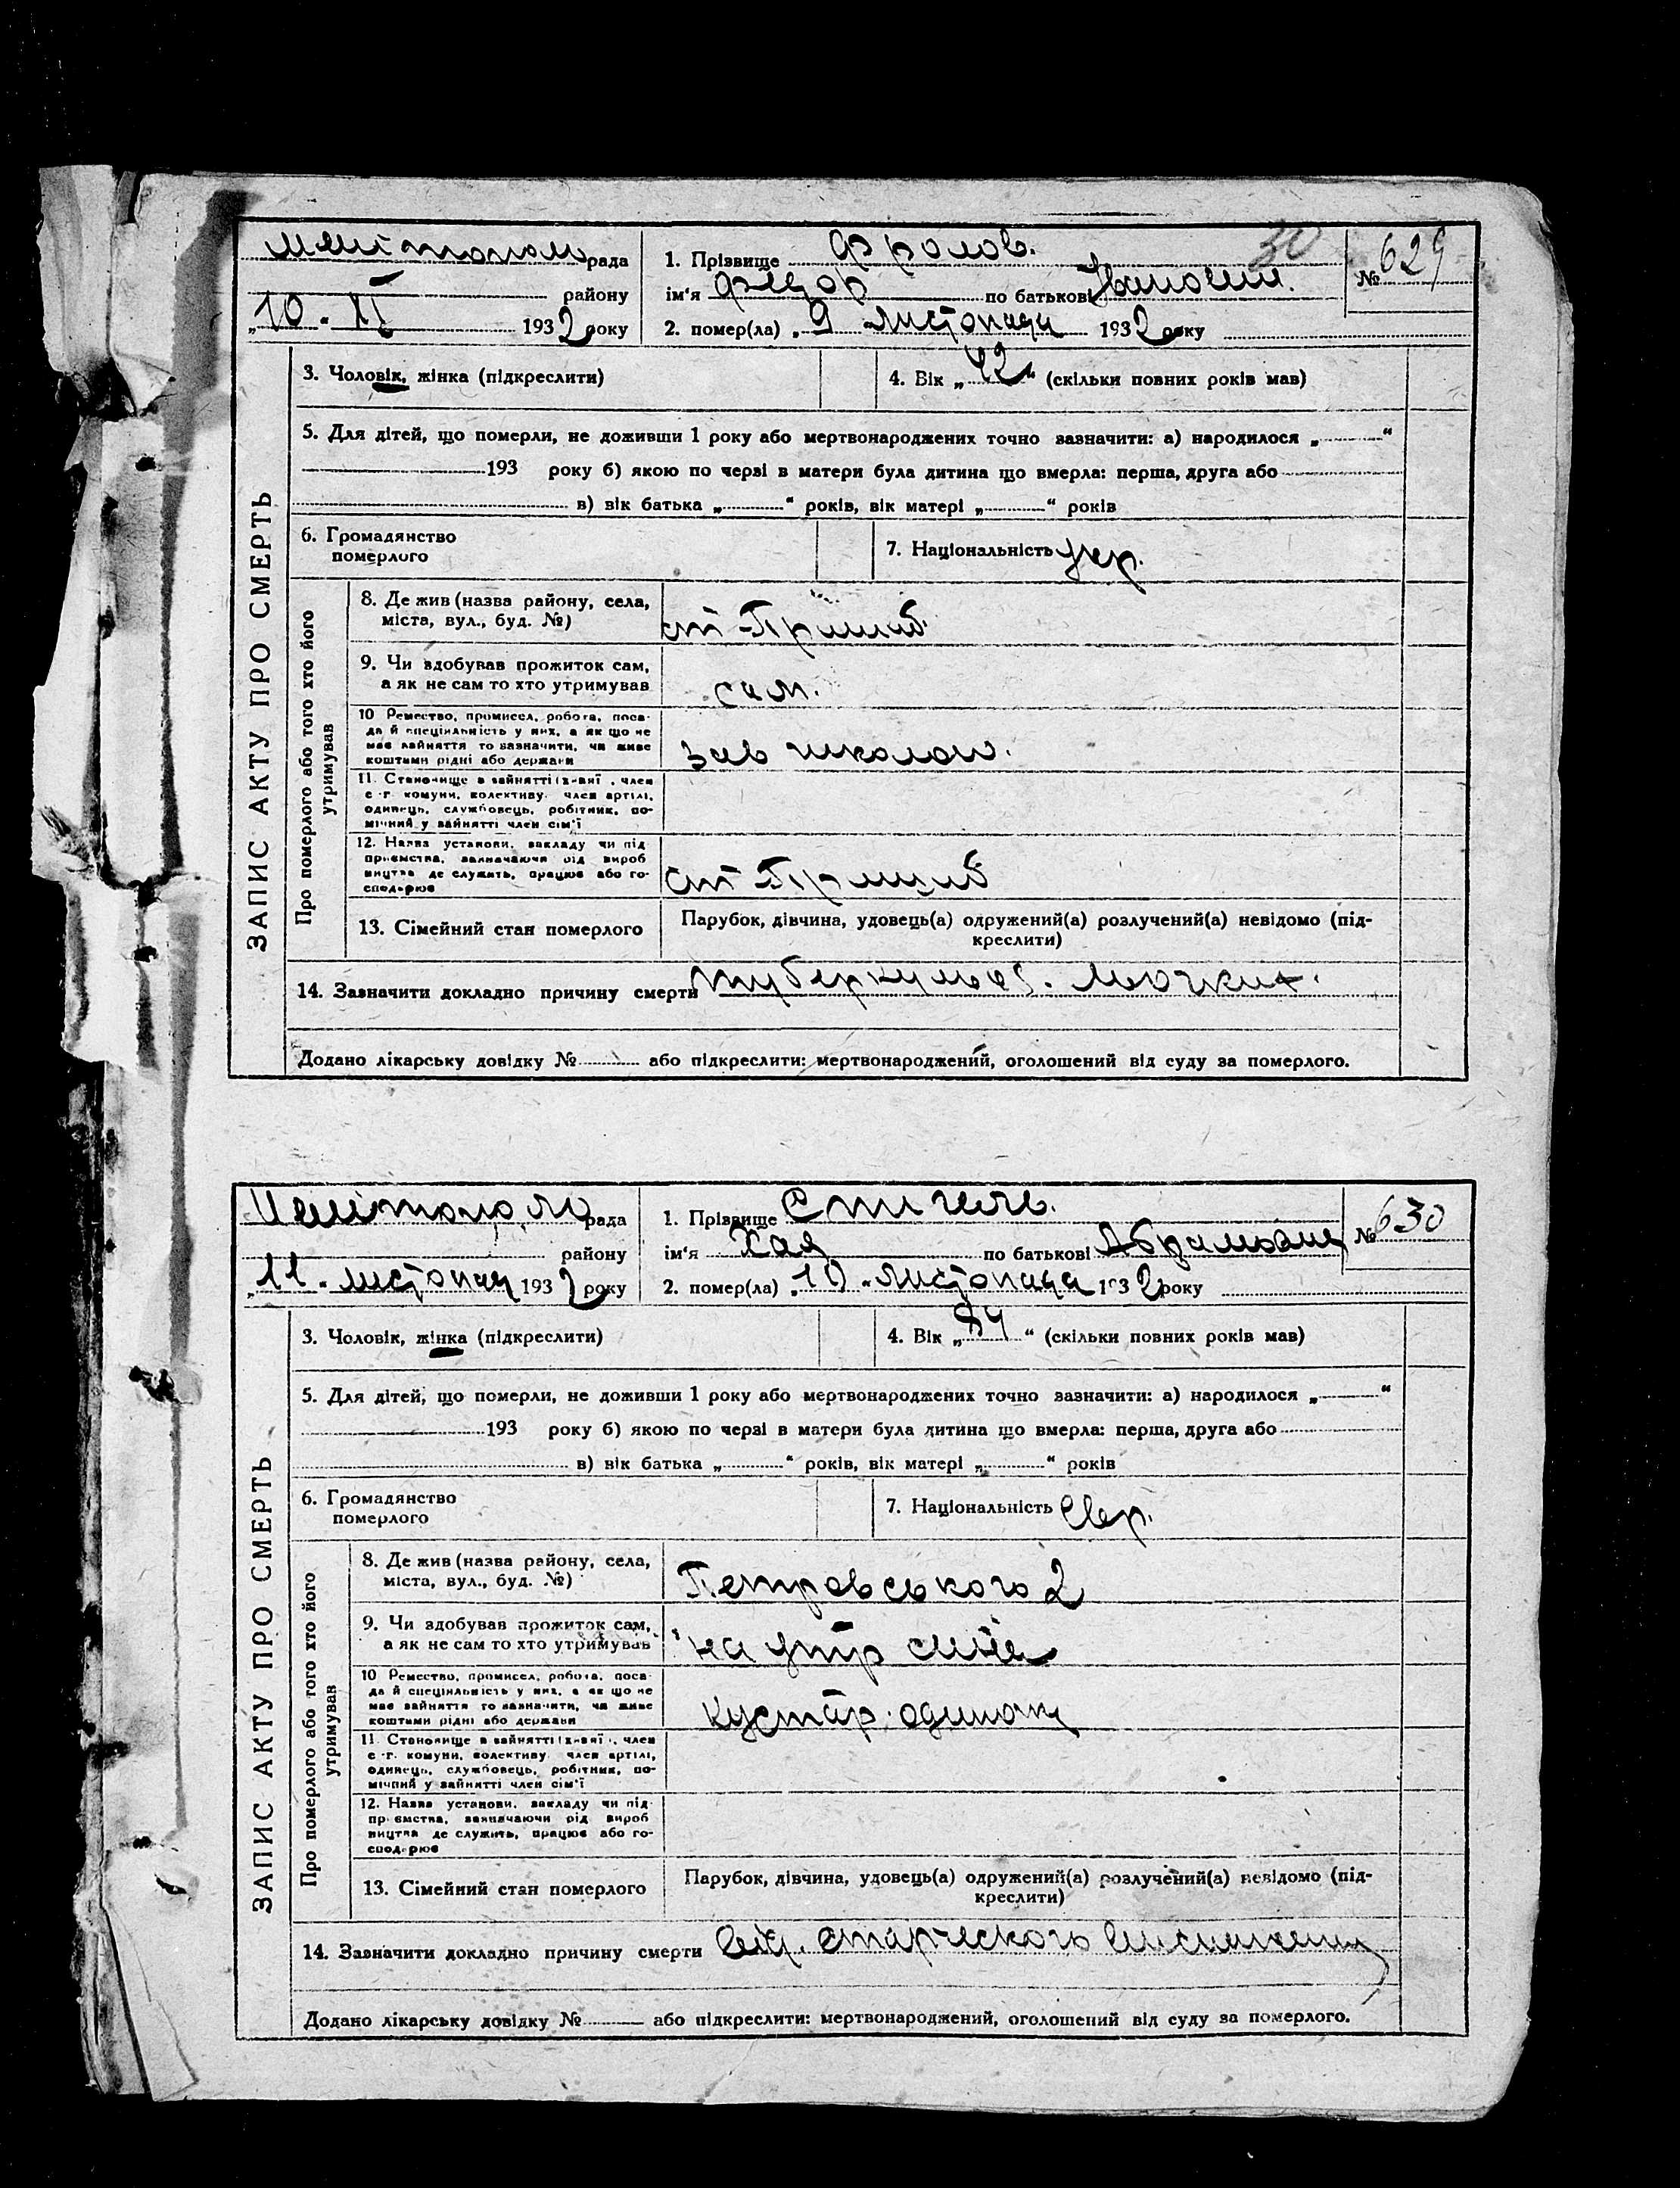 30
Мелітополь рада
1. Прізвище Фролов.
№ 629
району
ім'я Федор по батькові Іванович.
„10 - XI 1932 року
2. помер(ла) „9 листопада 1932 року
ЗАПИС АКТУ ПРО СМЕРТЬ
3. Чоловік, жінка (підкреслити)
4. Вік „42“ (скільки повних років мав)
5. Для дітей, що померли, не доживши 1 року або мертвонароджених точно зазначити: а) народилося „ “
193 року б) якою по черзі в матери була дитина що вмерла: перша, друга або
в) вік батька „ “ років, вік матері „ “ років
6. Громадянство
померлого
7. Національність укр.
Про померлого або того хто його
утримував
8. Де жив (назва району, села,
міста, вул., буд. №)
ст Пришиб.
9. Чи здобував прожиток сам,
а як не сам то хто утримував
сам.
10 Ремество, промисел, робота, поса-
да й спеціяльність у них, а як що не
має зайняття то зазначити, чи живе
коштами рідні або держави
зав школою.
11. Становище в зайнятті (хазяї, член
с.-г. комуни, колективу, член артілі,
одинець, службовець, робітник, по-
мічний у зайнятті член сім'ї
12. Назва установи, закладу чи під
приємства, зазначаючи рід вироб
ництва де служить, працює або го-
сподарює
ст Пришиб
13. Сімейний стан померлого
Парубок, дівчина, удовець(а) одружений(а) розлучений(а) невідомо (під-
креслити)
14. Зазначити докладно причину смерти туберкульоз. льогких.
Додано лікарську довідку № або підкреслити: мертвонароджений, оголошений від суду за померлого.
Мелітополь рада
1. Прізвище
№ 630
району
ім'я Хая по батькові Абрамовна
„11 - листопад 1932 року
2. помер(ла) „10 „ листопада 1932 року
ЗАПИС АКТУ ПРО СМЕРТЬ
3. Чоловік, жінка (підкреслити)
4. Вік „84“ (скільки повних років мав)
5. Для дітей, що померли, не доживши 1 року або мертвонароджених точно зазначити: а) народилося „ “
193 року б) якою по черзі в матери була дитина що вмерла: перша, друга або
в) вік батька „ “ років, вік матері „ “ років
6. Громадянство
померлого
7. Національність Євр.
Про померлого або того хто його
утримував
8. Де жив (назва району, села,
міста, вул., буд. №)
Петровського 2
9. Чи здобував прожиток сам,
а як не сам то хто утримував
на утр сина
10 Ремество, промисел, робота, поса-
да й спеціяльність у них, а як що не
має зайняття то зазначити, чи живе
коштами рідні або держави
кустар. одиночк
11. Становище в зайнятті (хазяї, член
с.-г. комуни, колективу, член артілі,
одинець, службовець, робітник, по-
мічний у зайнятті член сім'ї
12. Назва установи, закладу чи під
приємства, зазначаючи рід вироб
ництва де служить, працює або го-
сподарює
13. Сімейний стан померлого
Парубок, дівчина, удовець(а) одружений(а) розлучений(а) невідомо (під-
креслити)
14. Зазначити докладно причину смерти від. старческого
Додано лікарську довідку № або підкреслити: мертвонароджений, оголошений від суду за померлого.